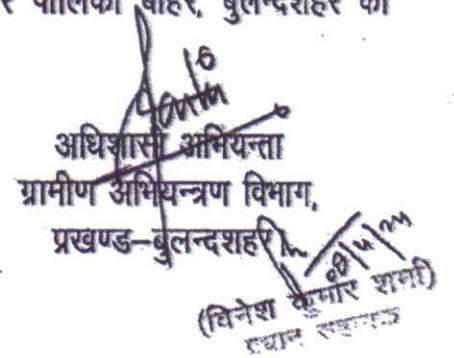 र पालिका बाहर, बुलन्दशहर का
अधिशासी अभियन्ता
ग्रामीण अभियन्त्रण विभाग,
प्रखण्ड–बुलन्दशहर
(विनेश कुमार शर्मा)
प्रधान सहायक